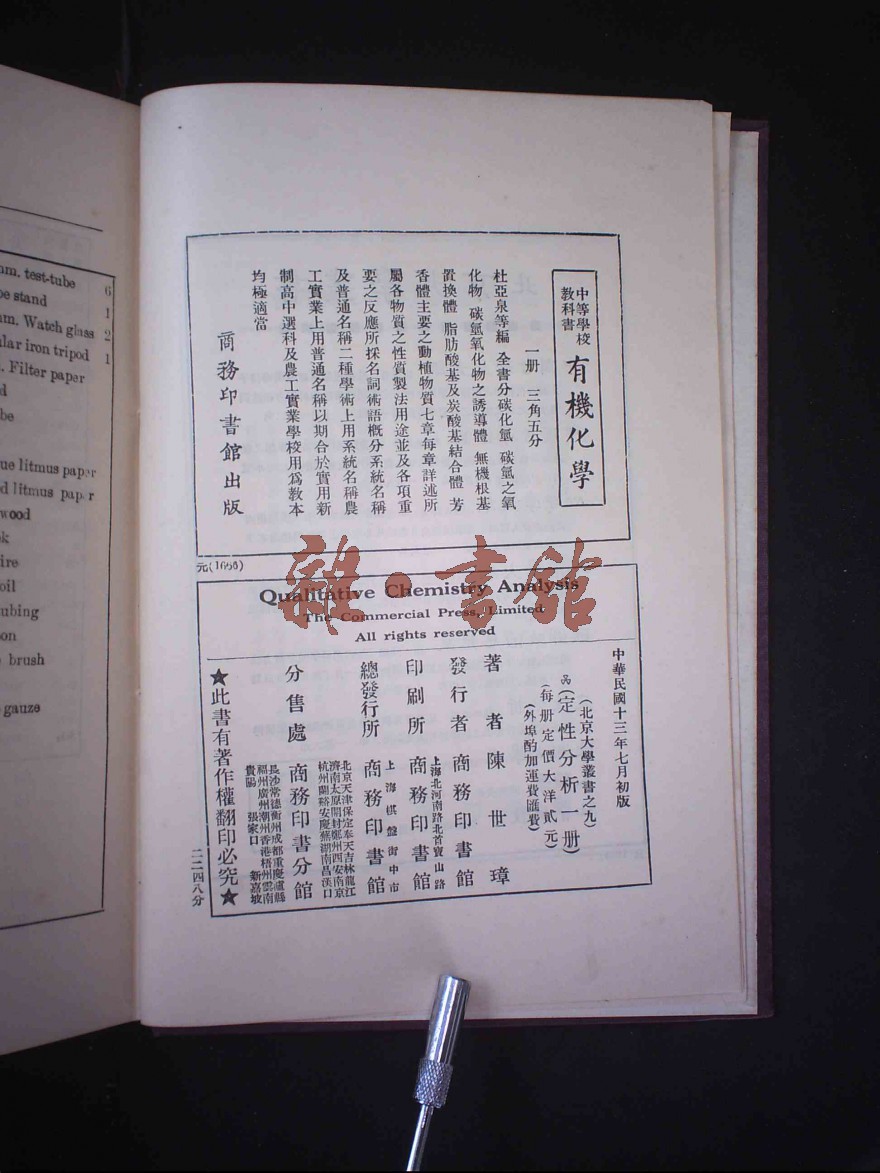 mm. test-tube 6
be stand 1
mm. Watch glass 2
ular iron tripod 1
. Filter paper
d
be
ue litmus paper
d litmus paper
wood
k
ire
oil
ubing
on
brush
gauze
中等學校
教科書
有機化學
一册 三角五分
杜亞泉等編 全書分碳化氫 碳氫之氧
化物 碳氫氧化物之誘導體 無機根基
置換體 脂肪酸基及炭酸基結合體 芳
香體主要之動植物質七章每章詳述所
屬各物質之性質製法用途並及各項重
要之反應所採名詞術語概分系統名稱
及普通名稱二種學術上用系統名稱農
工實業上用普通名稱以期合於實用新
制高中選科及農工實業學校用爲教本
均極適當
商務印書館出版
元(1698)
雜·書館
Qualitative Chemistry Analysis
The Commercial Press, Limited
All rights reserved
中華民國十三年七月初版
(北京大學叢書之九)
(定性分析一册)
(每册定價大洋貳元)
(外埠酌加運費匯費)
著者 陳世璋
發行者 商務印書館
上海北河南路北首寶山路
印刷所 商務印書館
上海棋盤街中市
總發行所 商務印書館
北京天津保定奉天吉林龍江
濟南太原開封鄭州西安南京
杭州蘭谿安慶蕪湖南昌漢口
分售處 商務印書分館
長沙常德衡州成都重慶瀘縣
福州廣州潮州香港梧州雲南
貴陽 張家口 新嘉坡
★此書有著作權翻印必究★
二二四八分